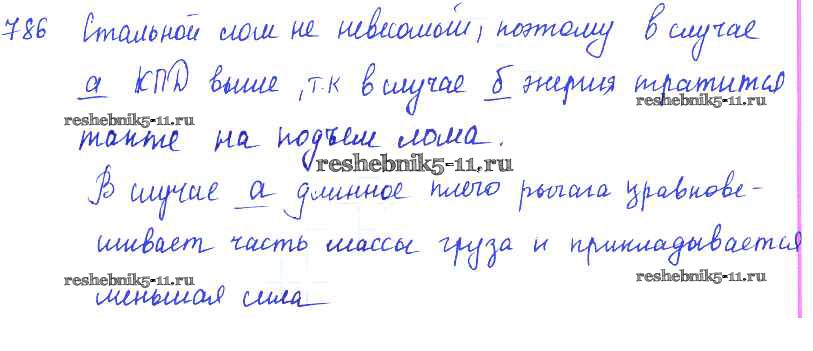 786 Стальной лом не невесомый, поэтому в случае
а КПД выше, т.к в случае б энергия тратится
reshebnik5-11.ru reshebnik5-11.ru
также на подъем лома.
reshebnik5-11.ru
В случае а длинное плечо рычага уравнове-
шивает часть массы груза и прикладывается
reshebnik5-11.ru reshebnik5-11.ru
меньшая сила